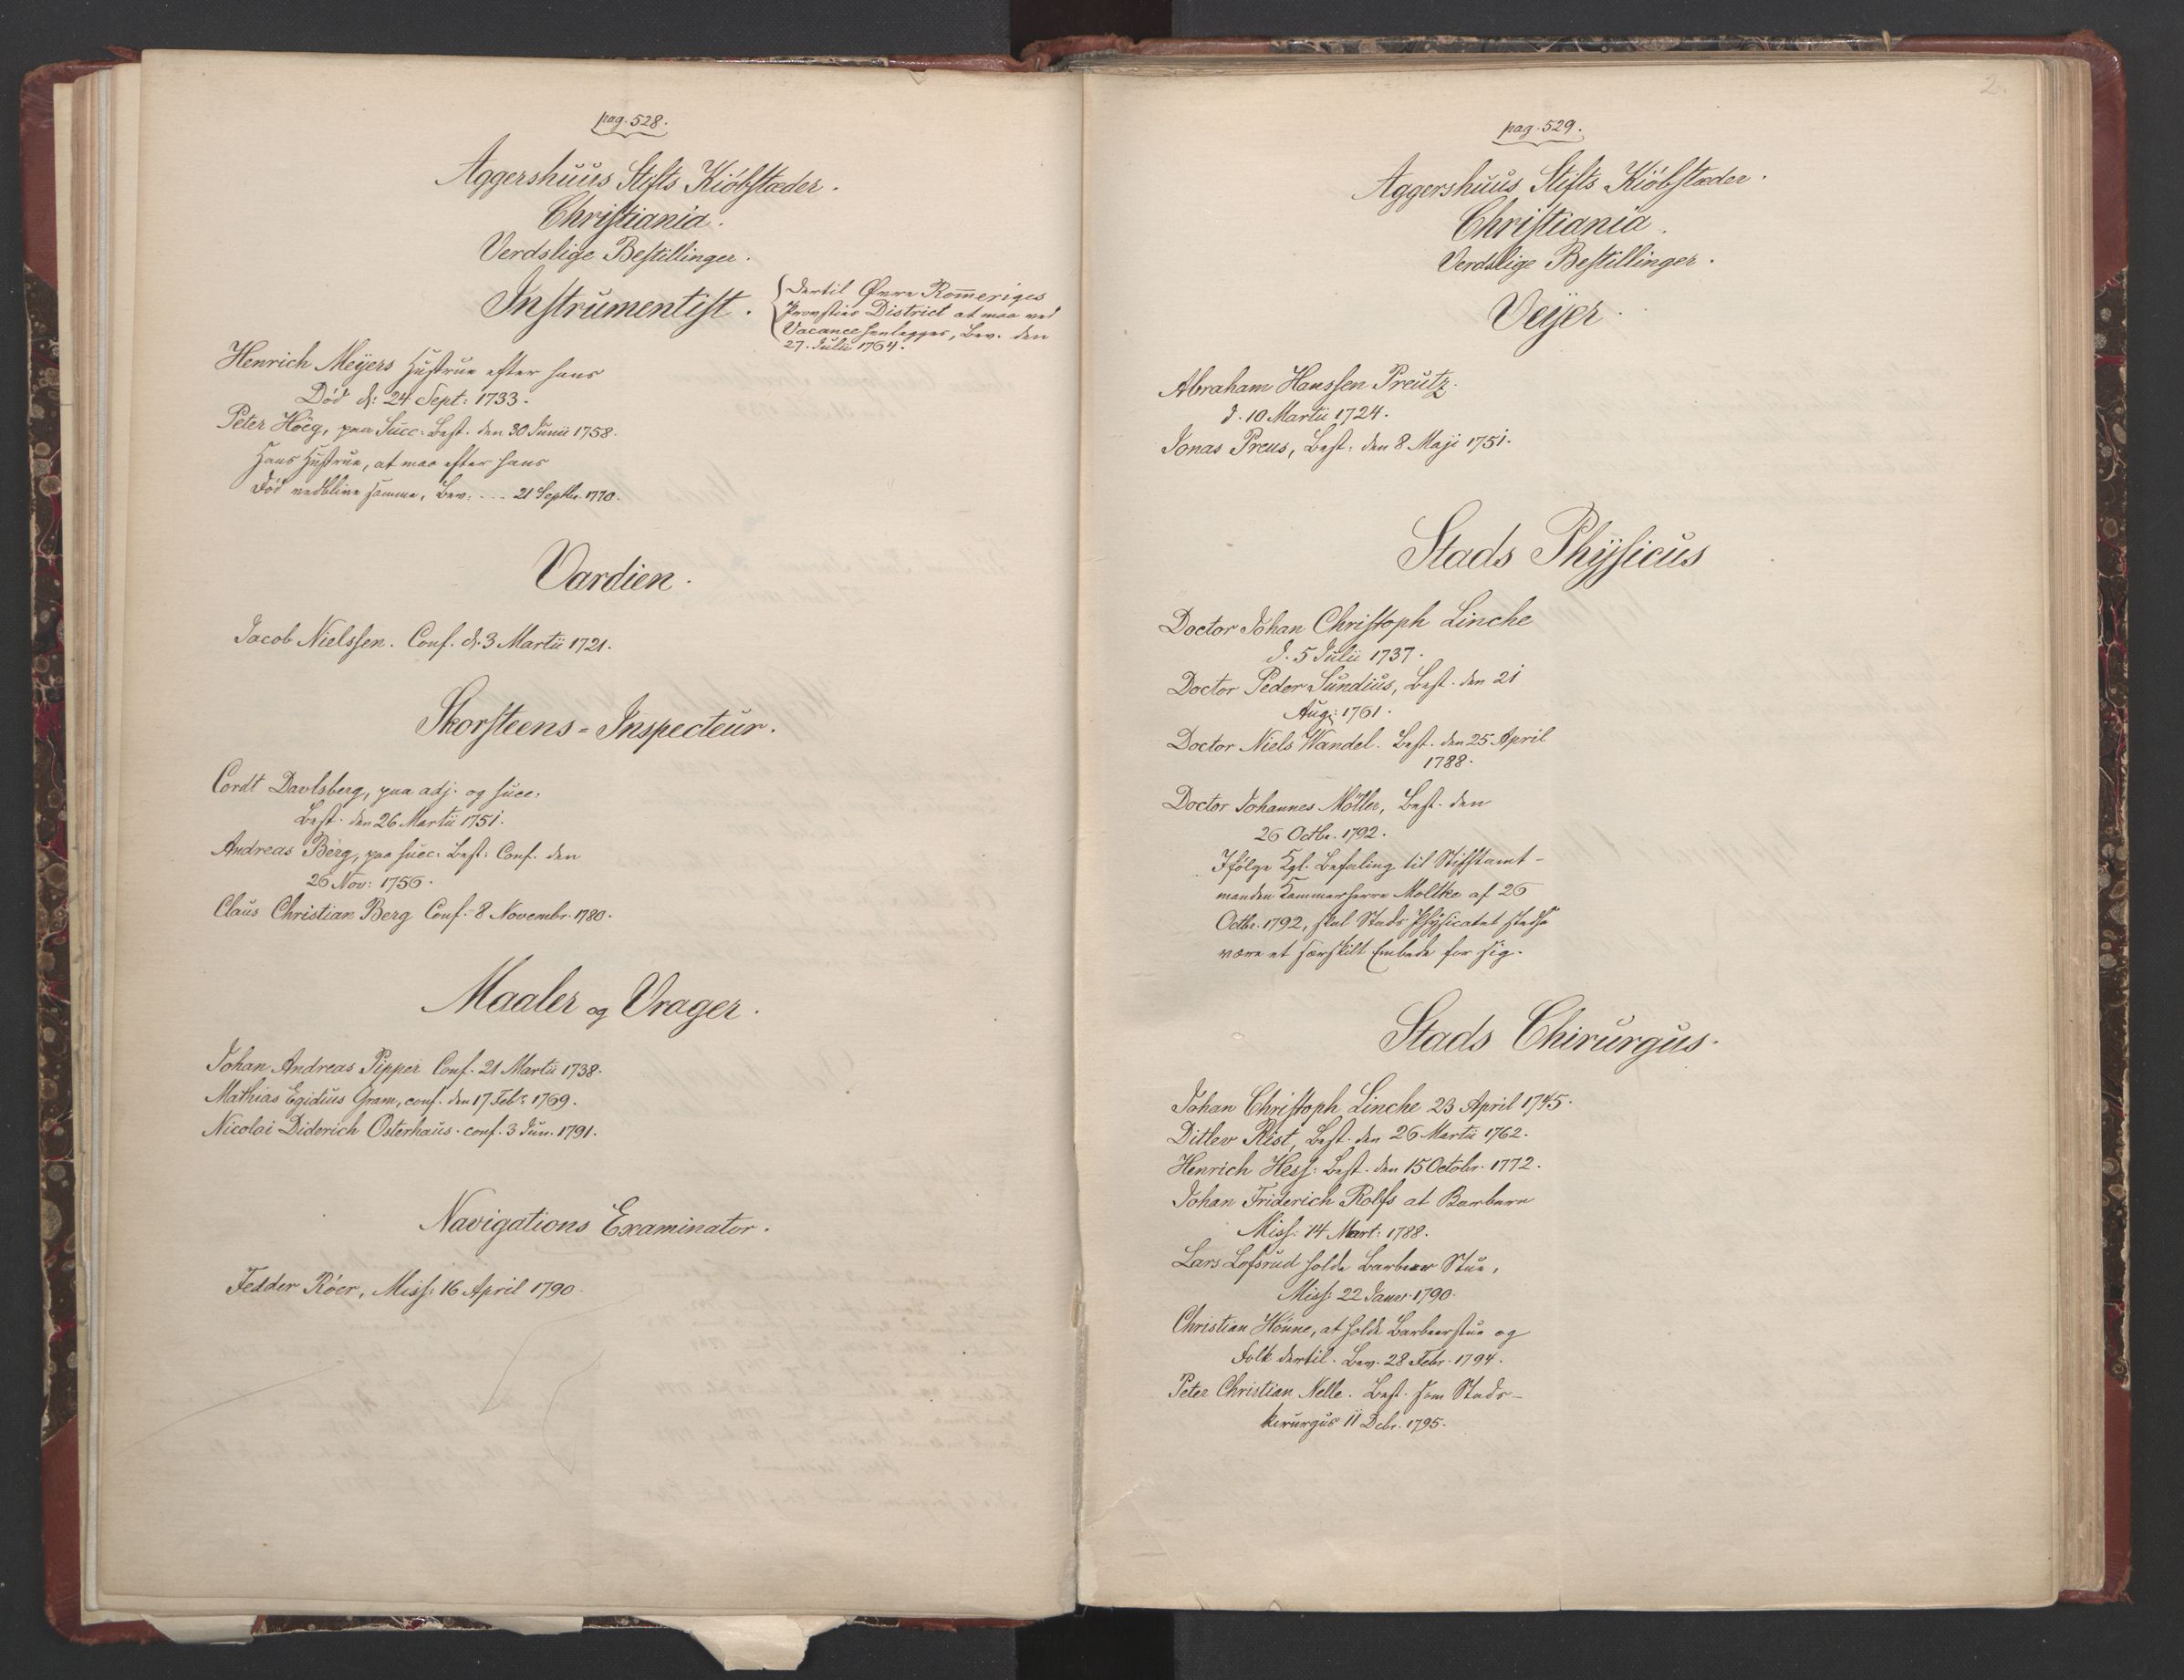 pag. 528.
Aggershuus Stifts Kiöbstæder.
Christiania.
Verdslige Bestillinger.
Instrumentist.
dertil Øvre Rom̅eriges
Provsties District at maa ved
Vacance henlegges, Bev. den
27. Julii 1764.
Henrich Meÿers Hustrue efter hans
Död d: 24 Sept: 1733.
Peter Höeg, paa Succ: Best. den 30 Junii 1758.
Hans Hustrue, at maa efter hans
Död vedblive samme, Bev: ... 21 Septbr. 1770.
Vardien.
Jacob Nielssen. Conf. d. 3 Martii 1721.
Skorsteens-Inspecteur.
Cordt Davlsberg, paa adj. og succ.
Best. den 26 Martii 1751.
Andreas Berg, paa succ. Best: Conf. den
26 Nov: 1756.
Claus Christian Berg Conf: 8 Novembr. 1780.
Maaler og Vrager.
Johan Andreas Pipper Conf. 21 Martii 1738.
Mathias Egidius Gram, conf. den 17 Febr 1769.
Nicolai Diderich Osterhaus. conf. 3 Jun. 1791.
Navigations Examinator.
Fedder Röer, Miss: 16 April 1790.
2.
pag. 529.
Aggershuus Stifts Kiöbstæder.
Christiania.
Verdslige Bestillinger.
Veÿer.
Abraham Hanssen Preutz.
d. 10 Martii 1724.
Jonas Preus, Best: den 8 Maji 1751.
Stads Phÿsicus
Doctor Johan Christoph Linche
d. 5 Julii 1737.
Doctor Peder Sundius, Best. den 21
Aug: 1761.
Doctor Niels Wandel. Best. den 25 April
1788.
Doctor Johannes Möller, Best. den
26 Octbr. 1792.
Ifölge Kgl. Befaling til Stiftamt-
manden Kammerherre Moltke af 26
Octbr. 1792, skal Stads Phÿsicatet stedse
være et særskilt Embede for sig.
Stads Chirurgus.
Johan Christoph Linche 23 April 1745.
Ditlev Rist, Best. den 26 Martii 1762.
Henrich Hess: Best. den 15 Octobr. 1772.
Johan Friderich Rolfs at Barbere
Miss: 14 Mart: 1788.
Lars Lofsrud holde Barbeer Stue,
Miss: 22 Januar 1790.
Christian Hönne, at holde Barbeerstue og
Folk dertil. Bev. 28 Febr. 1794.
Peter Christian Nelle. Best. som Stads-
kirurgus 11 Decbr. 1795.